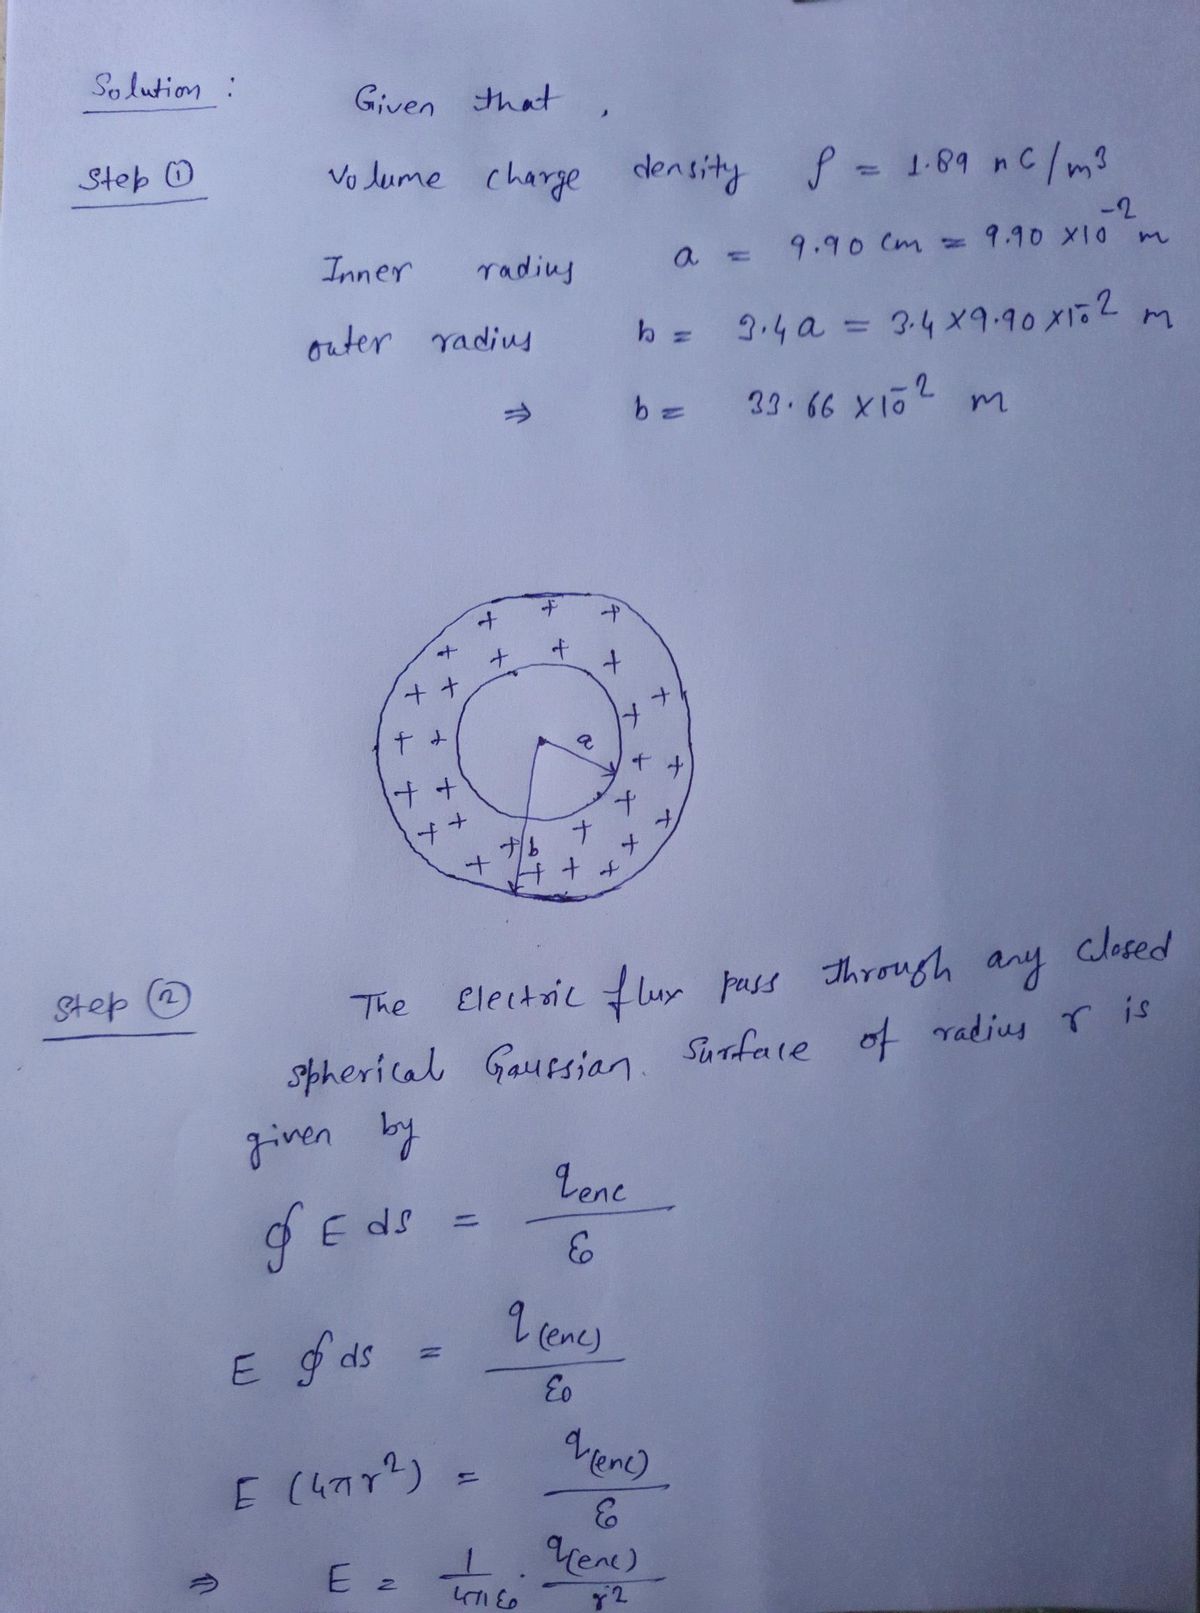 Solution :
Given that ,
Step ①
Volume charge density ρ = 1.89 nC/m³
Inner radius a = 9.90 cm = 9.90 × 10⁻² m
outer radius b = 3.4a = 3.4 × 9.90 × 10⁻² m
⇒ b = 33.66 × 10⁻² m
+ + +
+ + + +
+ + +
+
+ + a + +
+ + +
+ + + + +
+ b
+ + + +
Step ②
The Electric flux pass through any closed
spherical Gaussian. Surface of radius r is
given by
∮ E ds = qenc / ε0
E ∮ ds = q(enc) / ε0
E (4πr²) = q(enc) / ε0
⇒ E = 1/4πε0 · q(enc)/r²